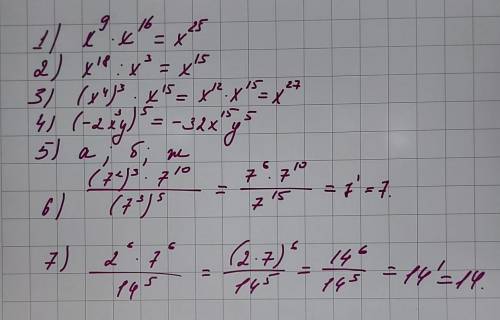 1) x⁹ · x¹⁶ = x²⁵
2) x¹⁸ : x³ = x¹⁵
3) (x⁴)³ · x¹⁵ = x¹² · x¹⁵ = x²⁷
4) (-2x³y)⁵ = -32x¹⁵y⁵
5) а ; б ; ж
6) (7²)³ · 7¹⁰ / (7³)⁵ = 7⁶ · 7¹⁰ / 7¹⁵ = 7¹ = 7.
7) 2⁶ · 7⁶ / 14⁵ = (2 · 7)⁶ / 14⁵ = 14⁶ / 14⁵ = 14¹ = 14.